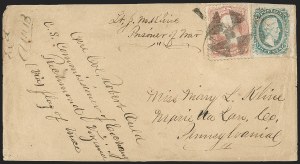 Lt. J. M. Kline
Prisoner of War
Care Col. Robert Ould
C.S. Commissioner of Exchange
Richmond Virginia
Via flag of truce
Miss Mary L. Kline
Marietta Lan. Co,
Pennsylvania